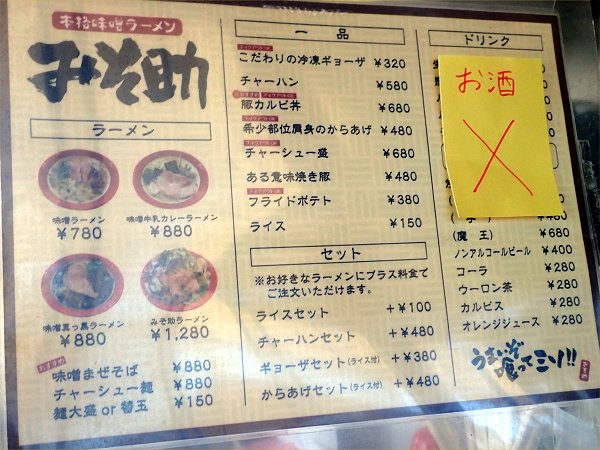 本格味噌ラーメン
みそ助
ラーメン
味噌ラーメン
¥780
味噌牛乳カレーラーメン
¥880
味噌真っ黒ラーメン
¥880
みそ助ラーメン
¥1,280
おすすめ
味噌まぜそば ¥880
チャーシュー麺 ¥880
麺大盛 or 替玉 ¥150
一品
テイクアウトOK
こだわりの冷凍ギョーザ ¥320
チャーハン ¥580
おすすめ テイクアウトOK
豚カルビ丼 ¥680
テイクアウトOK
希少部位肩身のからあげ ¥480
テイクアウトOK
チャーシュー盛 ¥680
ある意味焼き豚 ¥480
テイクアウトOK
フライドポテト ¥380
ライス ¥150
セット
※お好きなラーメンにプラス料金で
ご注文いただけます。
ライスセット +¥100
チャーハンセット +¥480
ギョーザセット(ライス付) +¥380
からあげセット(ライス付) +¥480
ドリンク
お酒
(魔王) ¥680
ノンアルコールビール ¥400
コーラ ¥280
ウーロン茶 ¥280
カルピス ¥280
オレンジジュース ¥280
うまいぞ
俺ってミソ!!